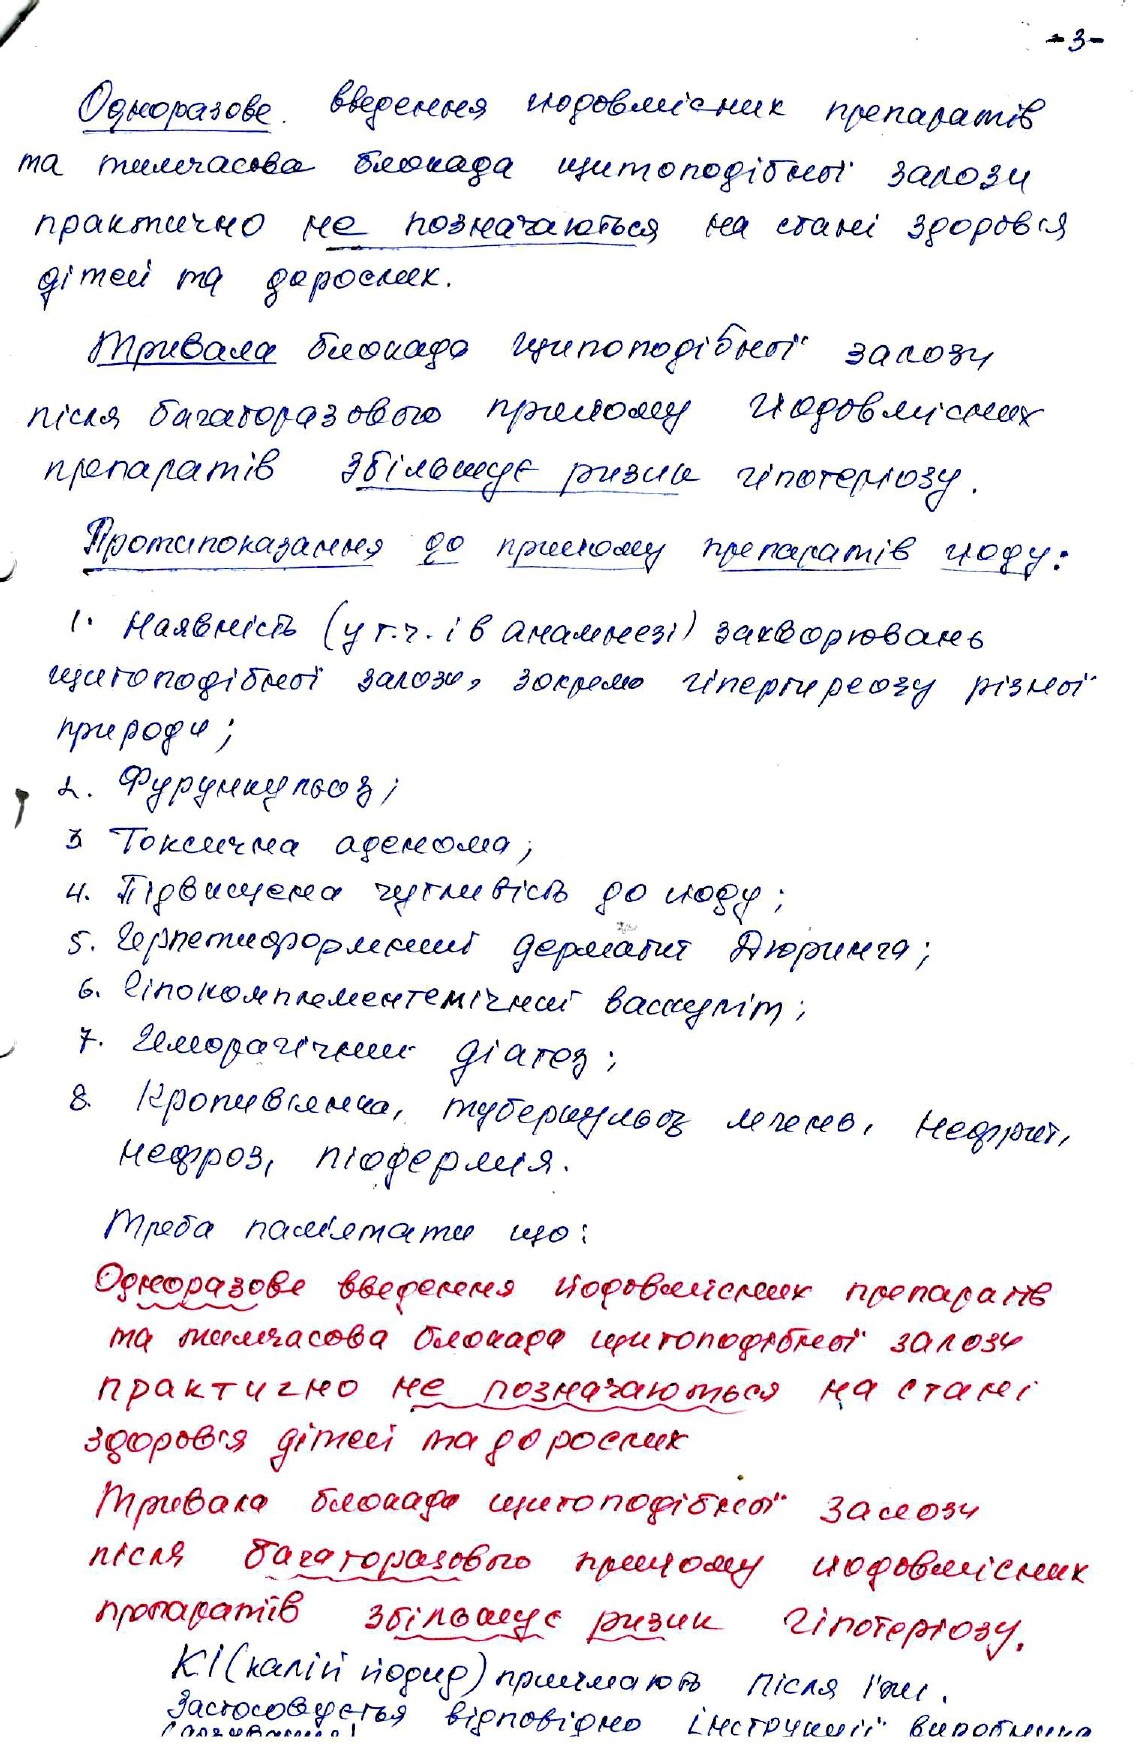 -3-
Одноразове введення йодовмісних препаратів
та тимчасова блокада щитоподібної залози
практично не позначаються на стані здоров'я
дітей та дорослих.
Тривала блокада щитоподібної залози
після багаторазового прийому йодовмісних
препаратів збільшує ризик гіпотеріозу.
Протипоказання до прийому препаратів йоду:
1. Наявність (у т.ч. і в анамнезі) захворювань
щитоподібної залози, зокрема гіпертиреозу різної
природи;
2. Фурункульоз;
3 Токсична аденома;
4. Підвищена чутливість до йоду;
5. Герпетиформний дерматит Дюринга;
6. Гіпокомплементемічний васкуліт;
7. Геморагічний діатез;
8. Кропив'янка, туберкульоз легень, нефрит,
нефроз, піодермія.
Треба пам'ятати що:
Одноразове введення йодовмісних препаратів
та тимчасова блокада щитоподібної залози
практично не позначаються на стані
здоров'я дітей та дорослих
Тривала блокада щитоподібної залози
після багаторазового прийому йодовмісних
препаратів збільшує ризик гіпотеріозу.
КІ (калій йодид) приймають після їжи.
Застосовується відповідно інструкції виробника